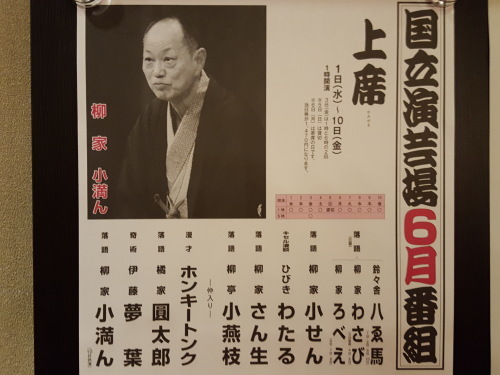 国立演芸場6月番組
上席
1日(水)～10日(金)
1時開演
3日(金)は1時と6時の2回
柳家 小満ん
鈴々舎 八ゑ馬
落語 柳家 わさび
柳家 ろべえ
落語 柳家 小せん
ひびき わたる
落語 柳家 さん生
落語 柳亭 小燕枝
―仲入り―
漫才 ホンキートンク
落語 橘家 圓太郎
奇術 伊藤 夢葉
落語 柳家 小満ん